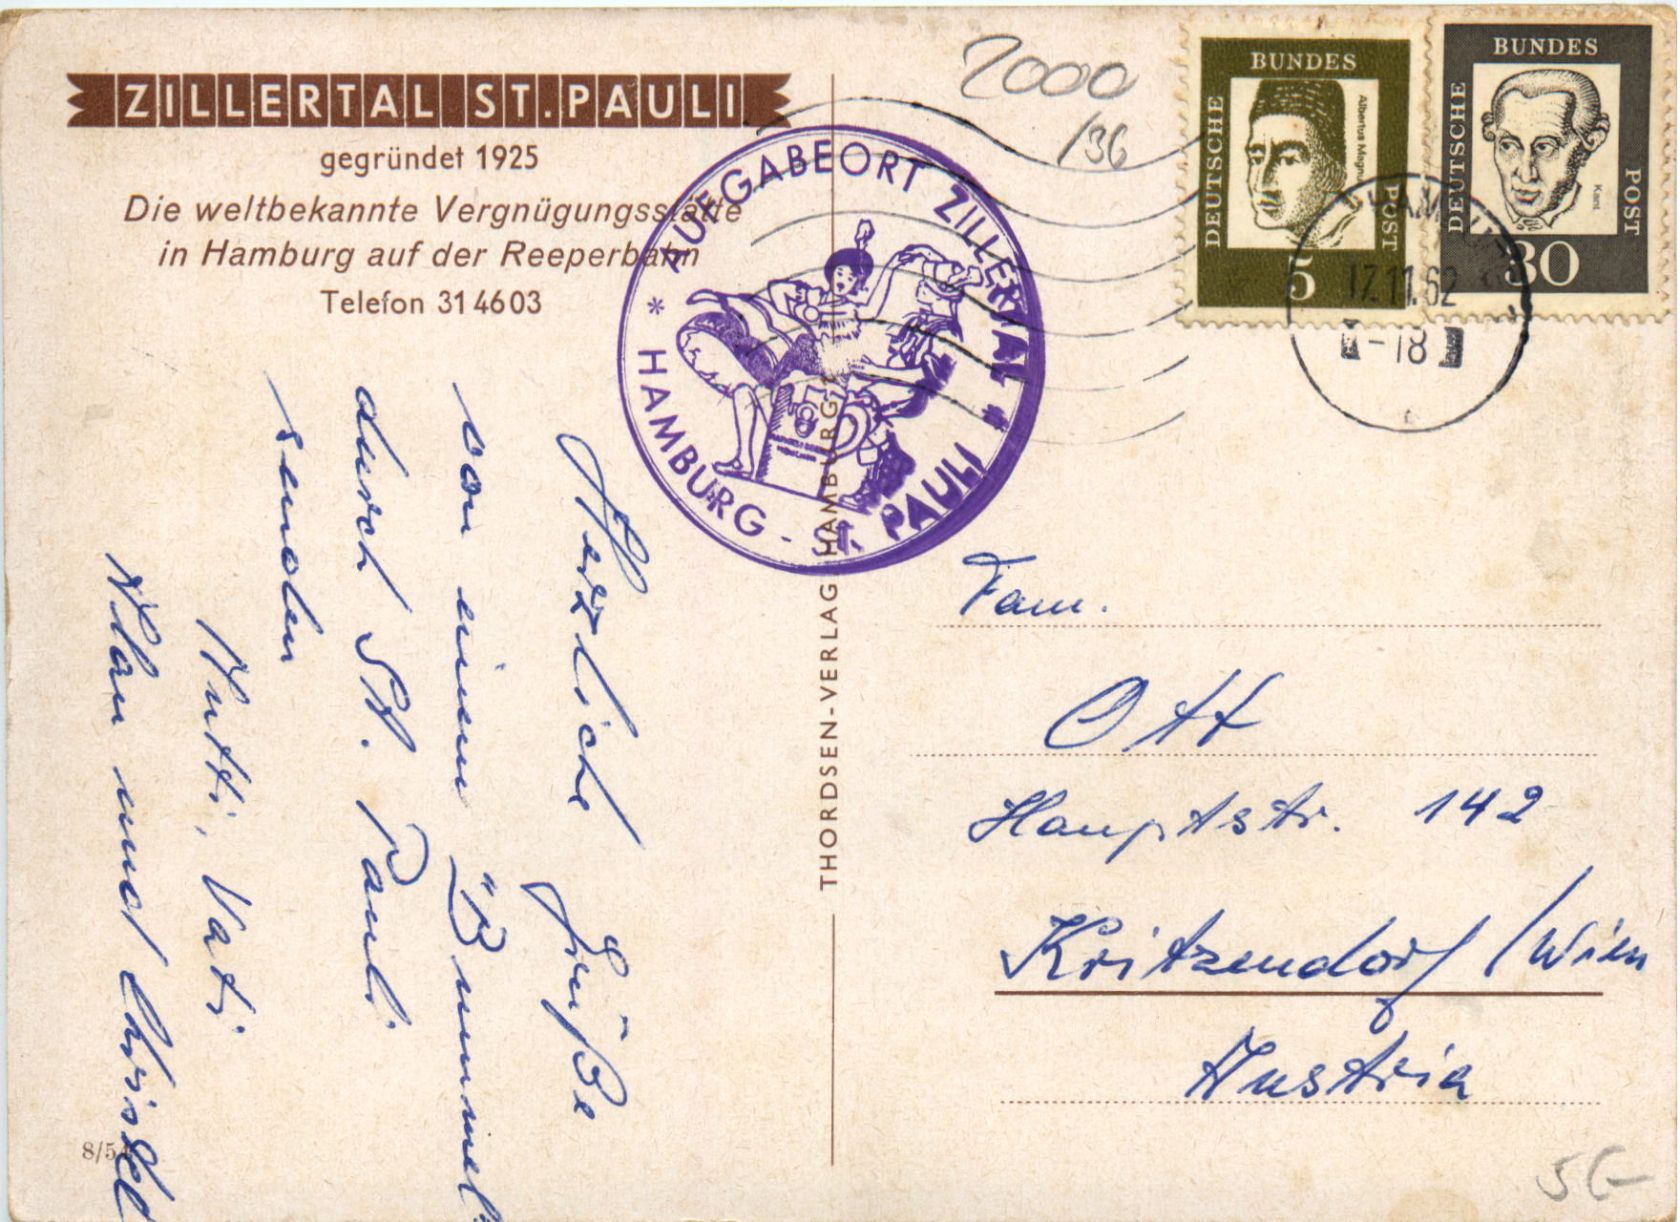 ZILLERTAL ST. PAULI
gegründet 1925
Die weltbekannte Vergnügungsstätte
in Hamburg auf der Reeperbahn
Telefon 31 46 03
* AUFGABEORT ZILLERTAL *
HAMBURG - ST. PAULI
2000
/36
DEUTSCHE BUNDES POST
Albertus Magnus
5
DEUTSCHE BUNDES POST
Kant
30
HAMBURG
17.11.62
-18
Herzliche Grüße
von einem "Bummel"
durch St. Pauli
senden
Mutti, Vati
und Christel
THORDSEN-VERLAG HAMBURG
Fam.
Ott
Hauptstr. 142
Kritzendorf / Wien
Austria
8/5